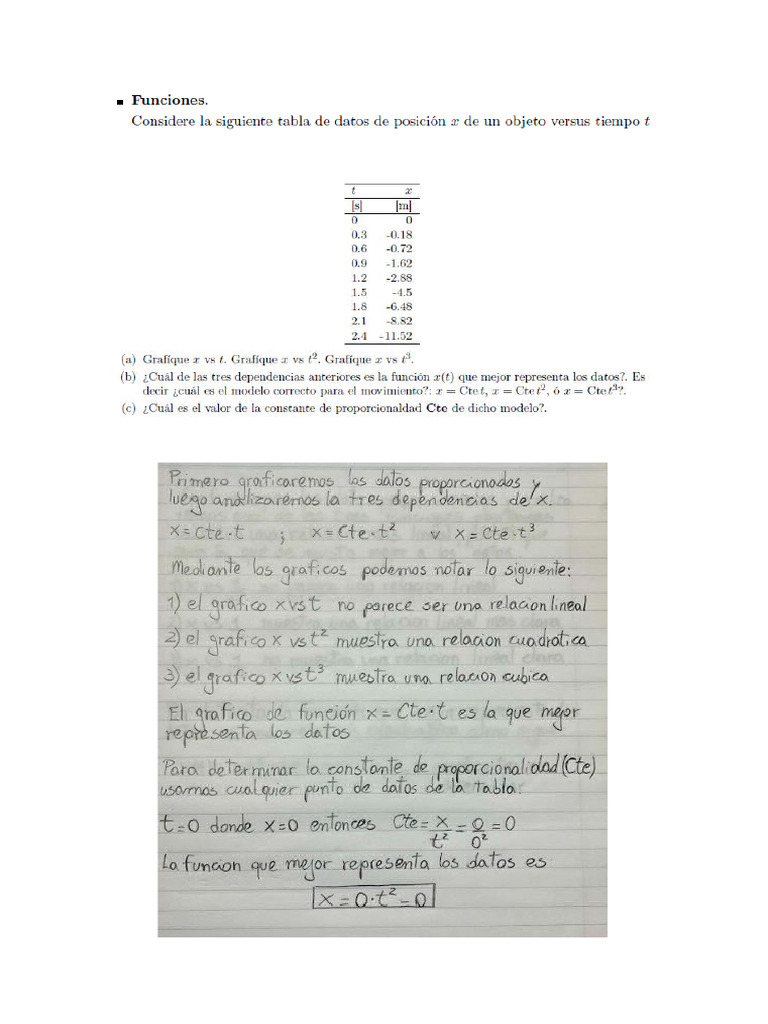 ▪ Funciones.
Considere la siguiente tabla de datos de posición x de un objeto versus tiempo t
t x
[s] [m]
0 0
0.3 -0.18
0.6 -0.72
0.9 -1.62
1.2 -2.88
1.5 -4.5
1.8 -6.48
2.1 -8.82
2.4 -11.52
(a) Grafíque x vs t. Grafíque x vs t². Grafíque x vs t³.
(b) ¿Cuál de las tres dependencias anteriores es la función x(t) que mejor representa los datos?. Es
decir ¿cuál es el modelo correcto para el movimiento?: x = Cte t, x = Cte t², ó x = Cte t³?.
(c) ¿Cuál es el valor de la constante de proporcionaldad Cte de dicho modelo?.
Primero graficaremos los datos proporcionados y
luego analizaremos la tres dependencias de x.
x = Cte · t ; x = Cte · t² v x = Cte · t³
Mediante los graficos podemos notar lo siguiente:
1) el grafico x vs t no parece ser una relacion lineal
2) el grafico x vs t² muestra una relacion cuadratica
3) el grafico x vs t³ muestra una relacion cubica
El grafico de función x = Cte · t es la que mejor
representa los datos
Para determinar la constante de proporcionalidad (Cte)
usarmos cualquier punto de datos de la tabla:
t = 0 donde x = 0 entonces Cte = x/t² = 0/0² = 0
La funcion que mejor representa los datos es
x = 0 · t² = 0